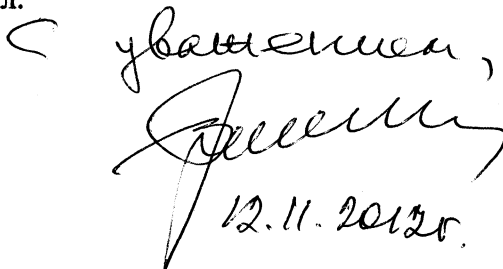 л.
С уважением,
12.11.2012г.